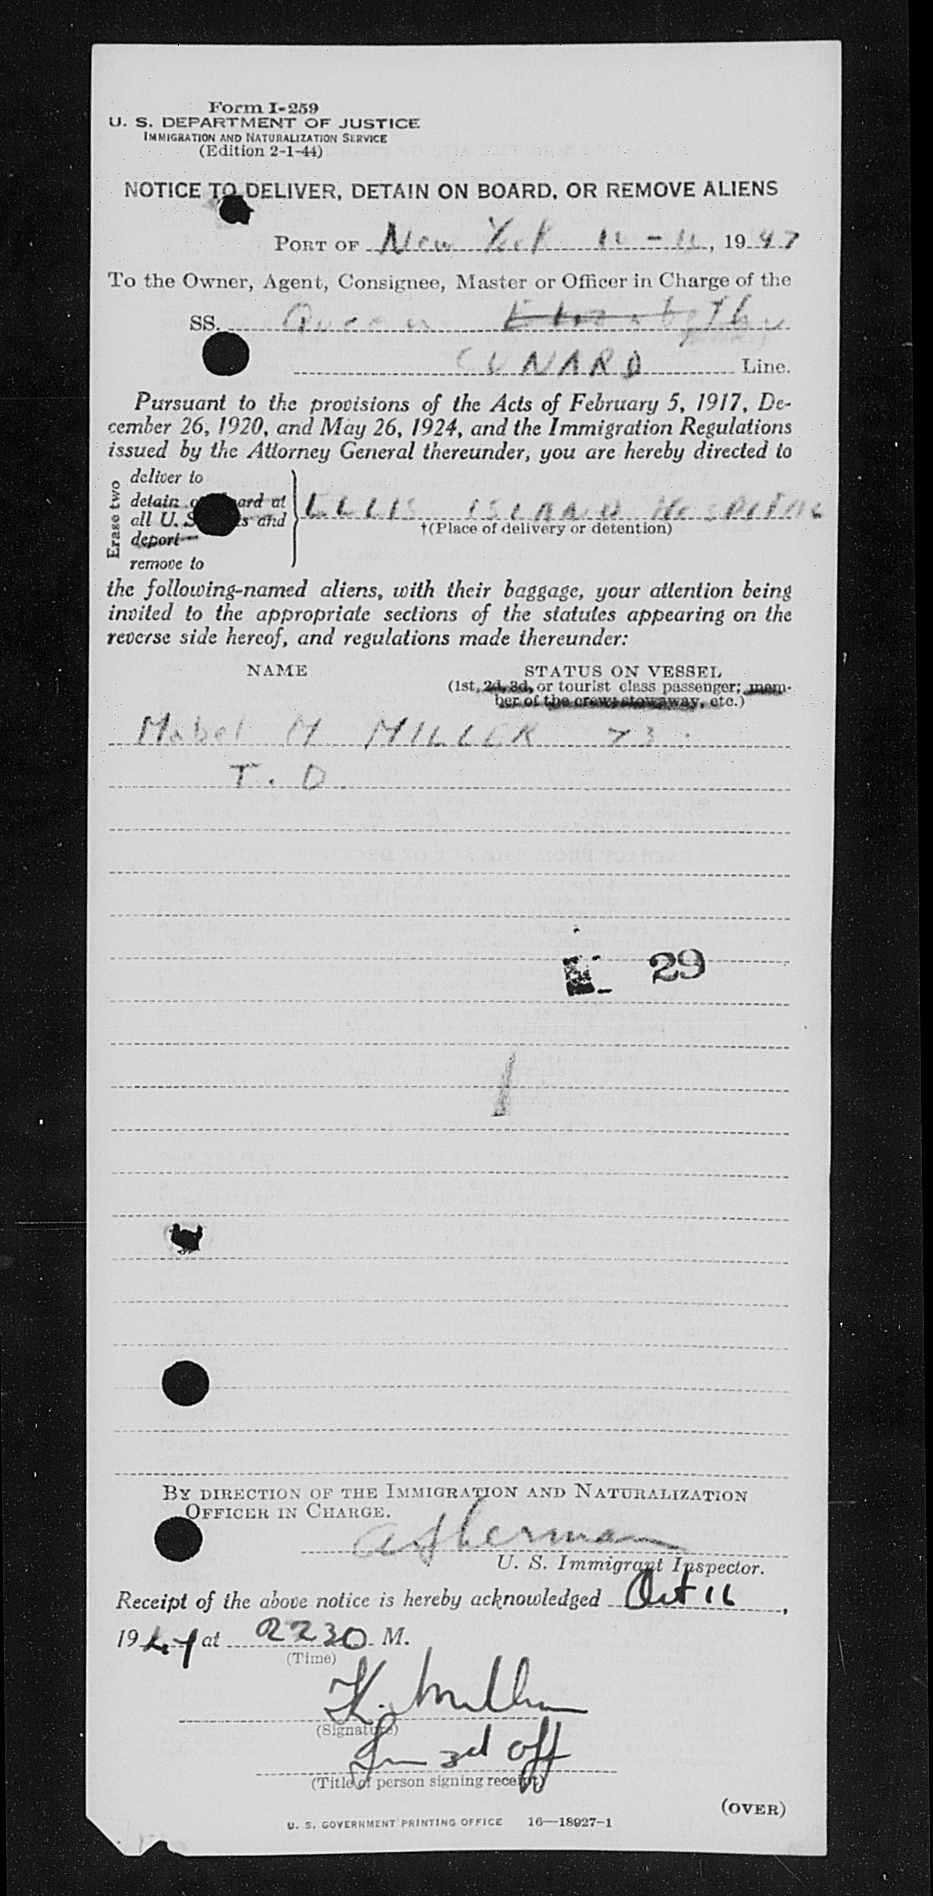 Form I-259
U. S. DEPARTMENT OF JUSTICE
IMMIGRATION AND NATURALIZATION SERVICE
(Edition 2-1-44)
NOTICE TO DELIVER, DETAIN ON BOARD, OR REMOVE ALIENS
PORT OF New York 1947
To the Owner, Agent, Consignee, Master or Officer in Charge of the
SS. Queen
CUNARD Line.
Pursuant to the provisions of the Acts of February 5, 1917, De-
cember 26, 1920, and May 26, 1924, and the Immigration Regulations
issued by the Attorney General thereunder, you are hereby directed to
Erase two
deliver to
detain on board at
all U. S. and
deport
remove to
ELLIS ISLAND HOSPITAL
†(Place of delivery or detention)
the following-named aliens, with their baggage, your attention being
invited to the appropriate sections of the statutes appearing on the
reverse side hereof, and regulations made thereunder:
NAME STATUS ON VESSEL
(1st, 2d, 3d, or tourist class passenger; mem-
ber of the crew; stowaway, etc.)
Mabel M MILLER 73
T. D.
29
BY DIRECTION OF THE IMMIGRATION AND NATURALIZATION
OFFICER IN CHARGE.
U. S. Immigrant Inspector.
Receipt of the above notice is hereby acknowledged Oct 16,
1947 at 2230 M.
(Time)
K.
(Signature)
3rd off
(Title of person signing receipt)
(OVER)
U. S. GOVERNMENT PRINTING OFFICE 16—18927-1